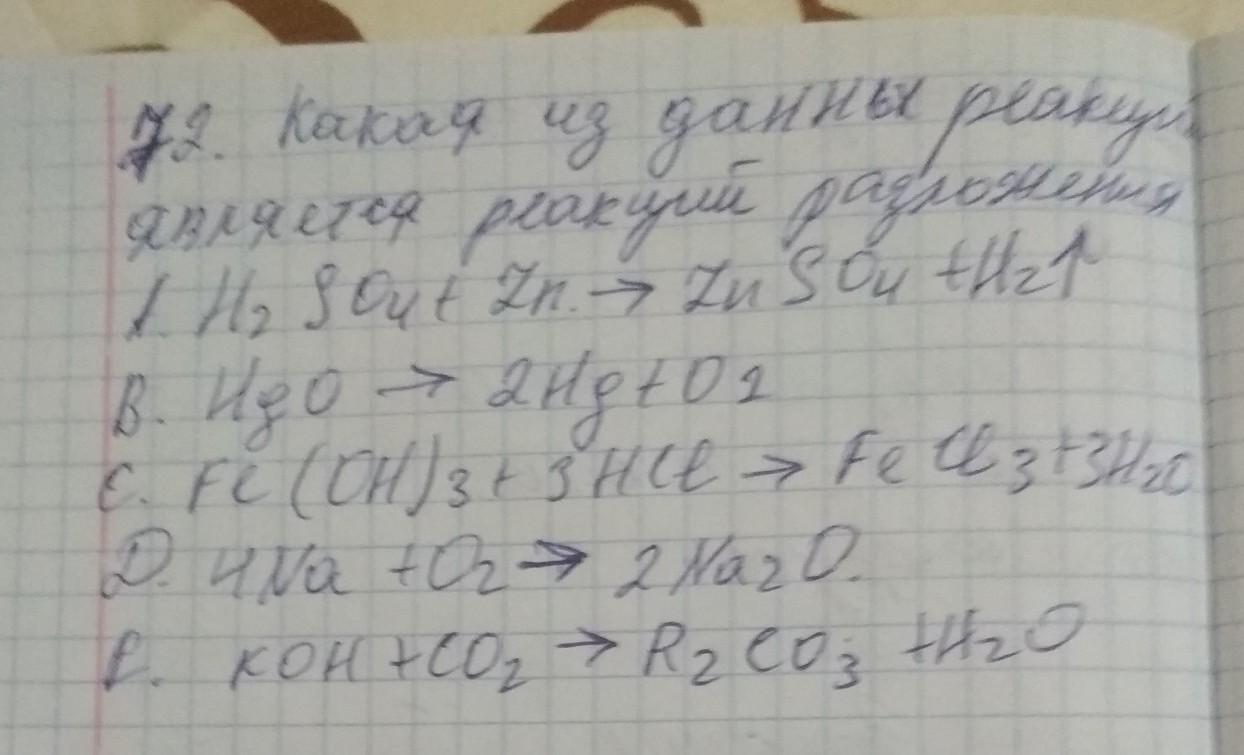 72. Какая из данны реакций
является реакций разложения
A. H₂SO₄ + Zn. → ZnSO₄ + H₂↑
B. HgO → 2Hg + O2
C. Fe(OH)₃ + 3HCl → FeCl₃ + 3H₂O
D. 4Na + O₂ → 2Na₂O.
E. KOH + CO₂ → K₂CO₃ + H₂O